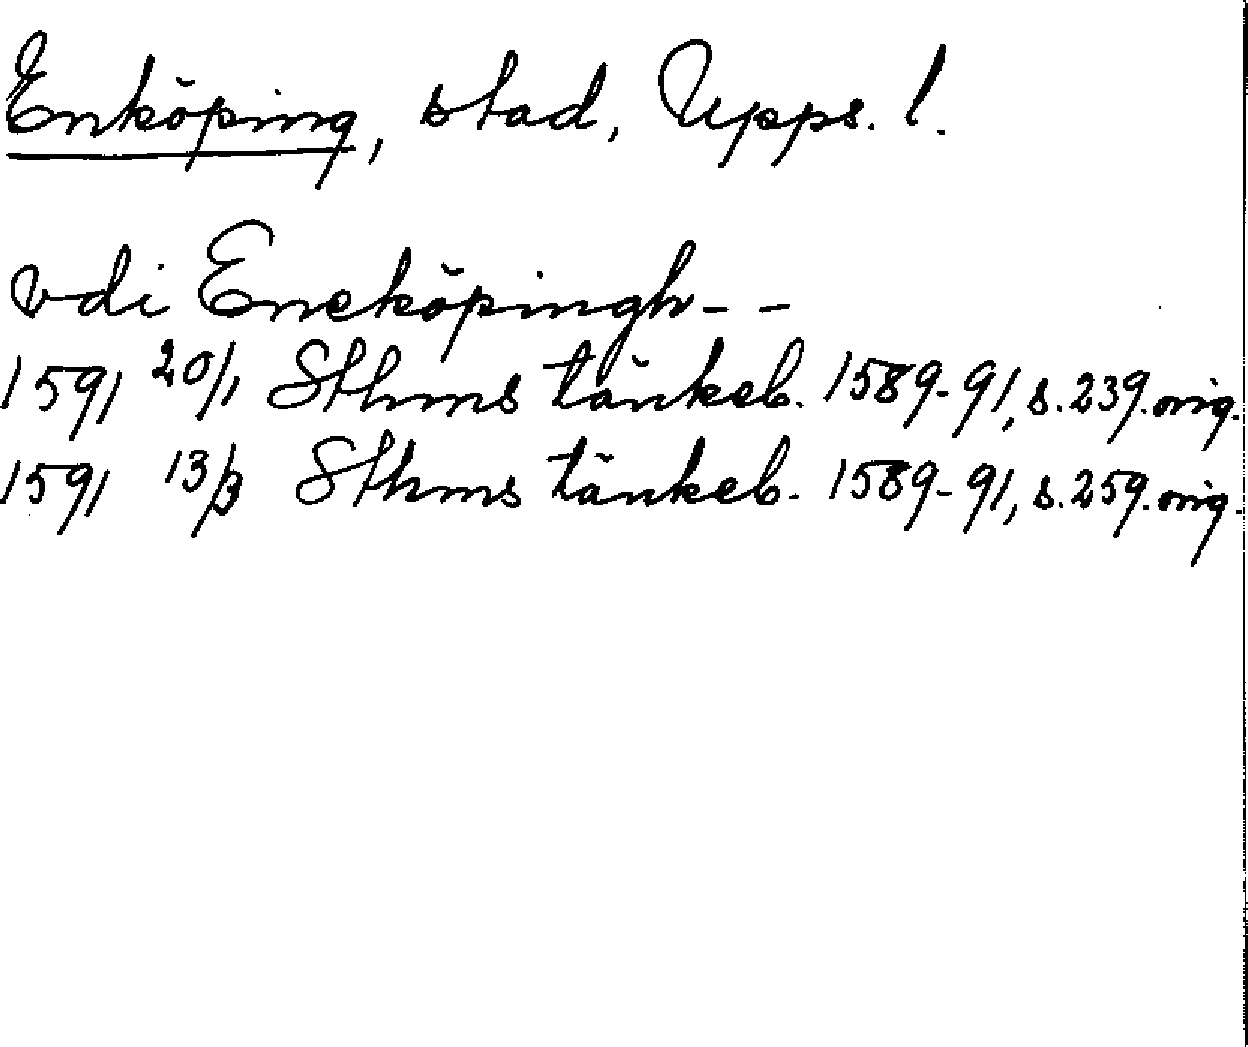 Enköping, stad, Upps. l.
vdi Eneköpingh - -
1591 20/1 Sthms tänkeb. 1589-91, s. 239. orig.
1591 13/3 Sthms tänkeb. 1589-91, s. 259. orig.